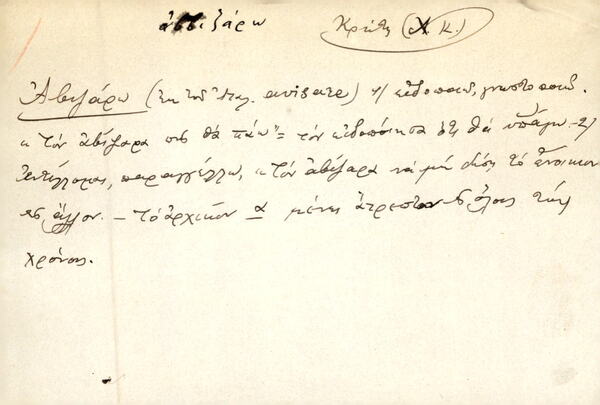 ἀβιζάρω Κρήτη (Α. Κ.)
Ἀβιζάρω (ἐκ τοῦ Ἰταλ. avisare) 1) εἰδοποιῶ, γνωστοποιῶ.
"τὸν ἀβίζαρα πῶς θὰ πάω" = τὸν εἰδοποίησα ὅτι θὰ ὑπάγω - 2)
ἐντέλλομαι, παραγγέλλω, "τὸν ἀβίζαρα νὰ μὴ δώσῃ τὸ ἐνοίκιον
εἰς ἄλλον. - τὸ ἀρχικὸν α μένει ἄτρεπτον εἰς ὅλους τοὺς
χρόνους.